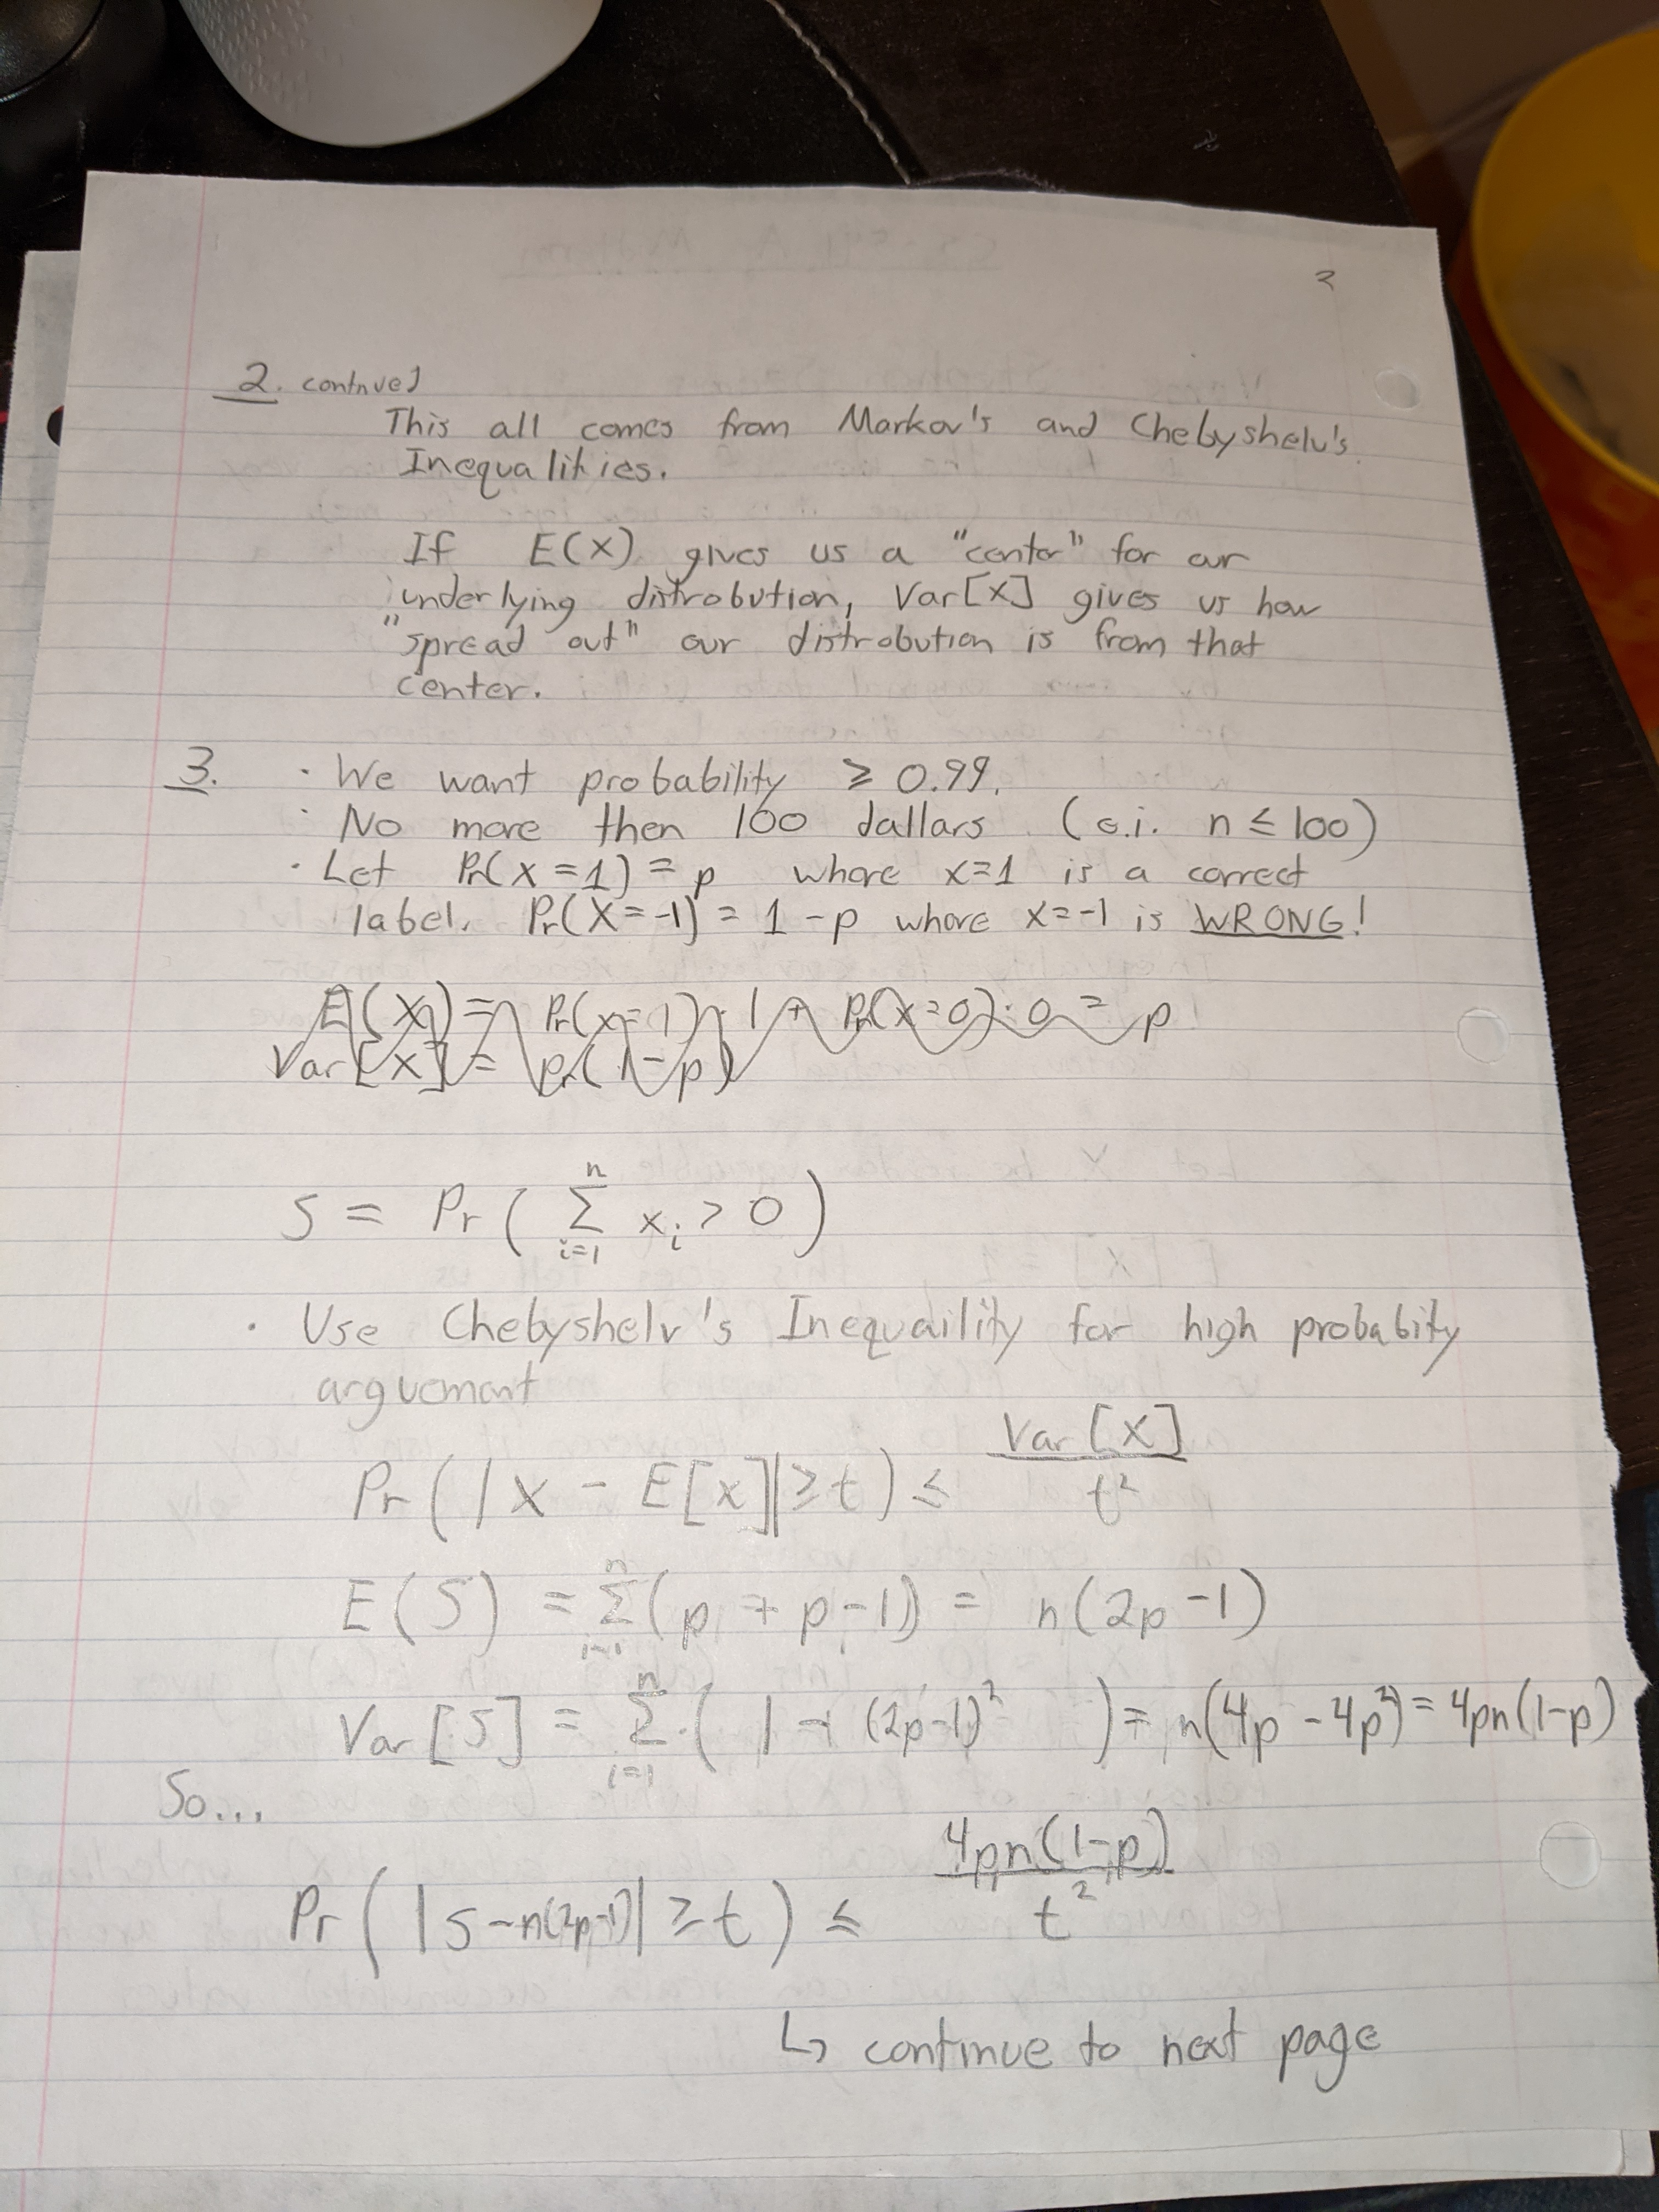 2
2. contnued
This all comes from Markov's and Chebyshelv's
Inequalities.
If E(X) gives us a "center" for our
underlying distrobution, Var[X] gives us how
"spread out" our distrobution is from that
center.
3. · We want probability ≥ 0.99.
· No more then 100 dallars (e.i. n ≤ 100)
· Let Pr(x=1) = p where x=1 is a correct
label. Pr(X=-1) = 1-p where x=-1 is WRONG!
E(X) = Pr(x=1)·1 + Pr(x=0)·0 = p
Var[X] = p(1-p)
S = Pr( Σ_{i=1}^{n} x_i > 0 )
· Use Chebyshelv's Inequaility for high probabity
arguement
Pr( |X - E[x]| ≥ t ) ≤ Var[X] / t²
E(S) = Σ_{i=1}^{n} (p + p-1) = n(2p-1)
Var[S] = Σ_{i=1}^{n} ( 1 - (2p-1)² ) = n(4p - 4p²) = 4pn(1-p)
So...
Pr( |S - n(2p-1)| ≥ t ) ≤ 4pn(1-p) / t²
↳ continue to next page